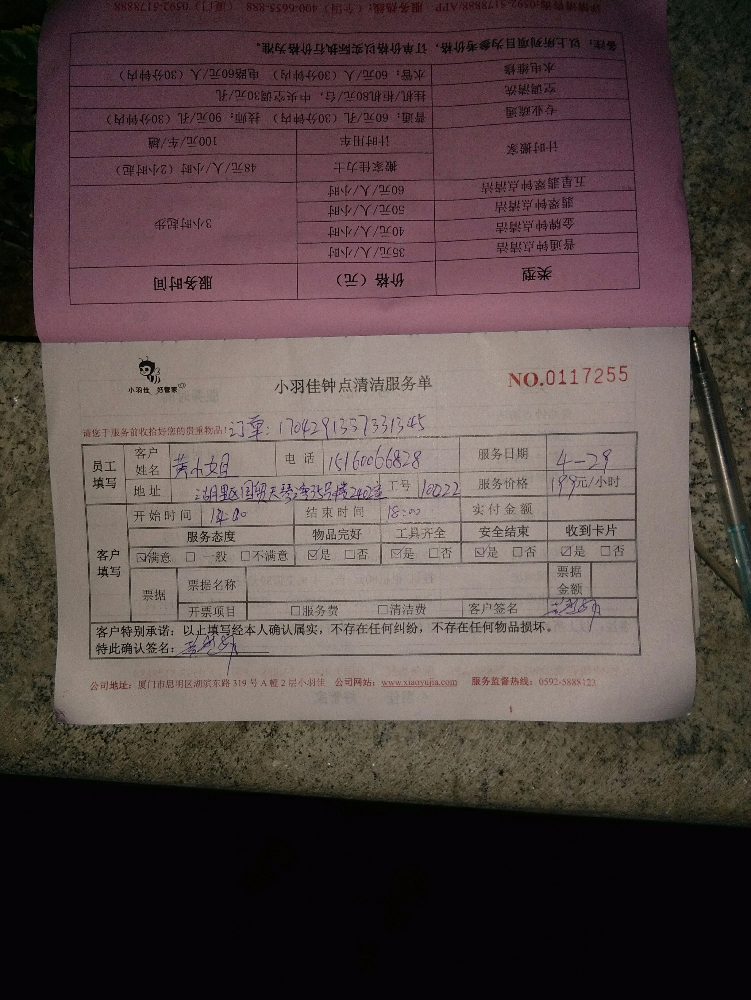 详情请咨询:0592-5178888/APP 服务热线:(全国)400-6655-888 (厦门)0592-5178888
备注:以上所列项目为参考价格,订单价格以实际执行价格为准。
水电维修 水管:60元/人(30分钟内) 电路60元/人(30分钟内)
空调清洗 挂机/柜机80元/台,中央空调30元/孔
专业疏通 普通:60元/孔(30分钟内) 技师:90元/孔(30分钟内)
计时搬家 计时用车 100元/车/趟
搬家佳力士 48元/人/小时(2小时起)
五星翡翠钟点清洁 60元/人/小时
翡翠钟点清洁 50元/人/小时 3小时起步
金牌钟点清洁 40元/人/小时
普通钟点清洁 35元/人/小时
类型 价格(元) 服务时间
小羽佳 好管家
小羽佳钟点清洁服务单
NO.0117255
请您于服务前收拾好您的贵重物品!
订单:1704291337331345
员工填写 客户姓名 黄小姐 电话 15160066828 服务日期 4-29
地址 湖里区国贸天琴湾 工号 10022 服务价格 199元/小时
客户填写 开始时间 14:00 结束时间 18:00 实付金额
服务态度 物品完好 工具齐全 安全结束 收到卡片
☑满意 □一般 □不满意 ☑是 □否 ☑是 □否 ☑是 □否 ☑是 □否
票据 票据名称 票据金额
开票项目 □服务费 □清洁费 客户签名
客户特别承诺:以上填写经本人确认属实,不存在任何纠纷,不存在任何物品损坏。
特此确认签名:
公司地址:厦门市思明区湖滨东路319号A幢2层小羽佳 公司网站:www.xiaoyujia.com 服务监督热线:0592-5888123